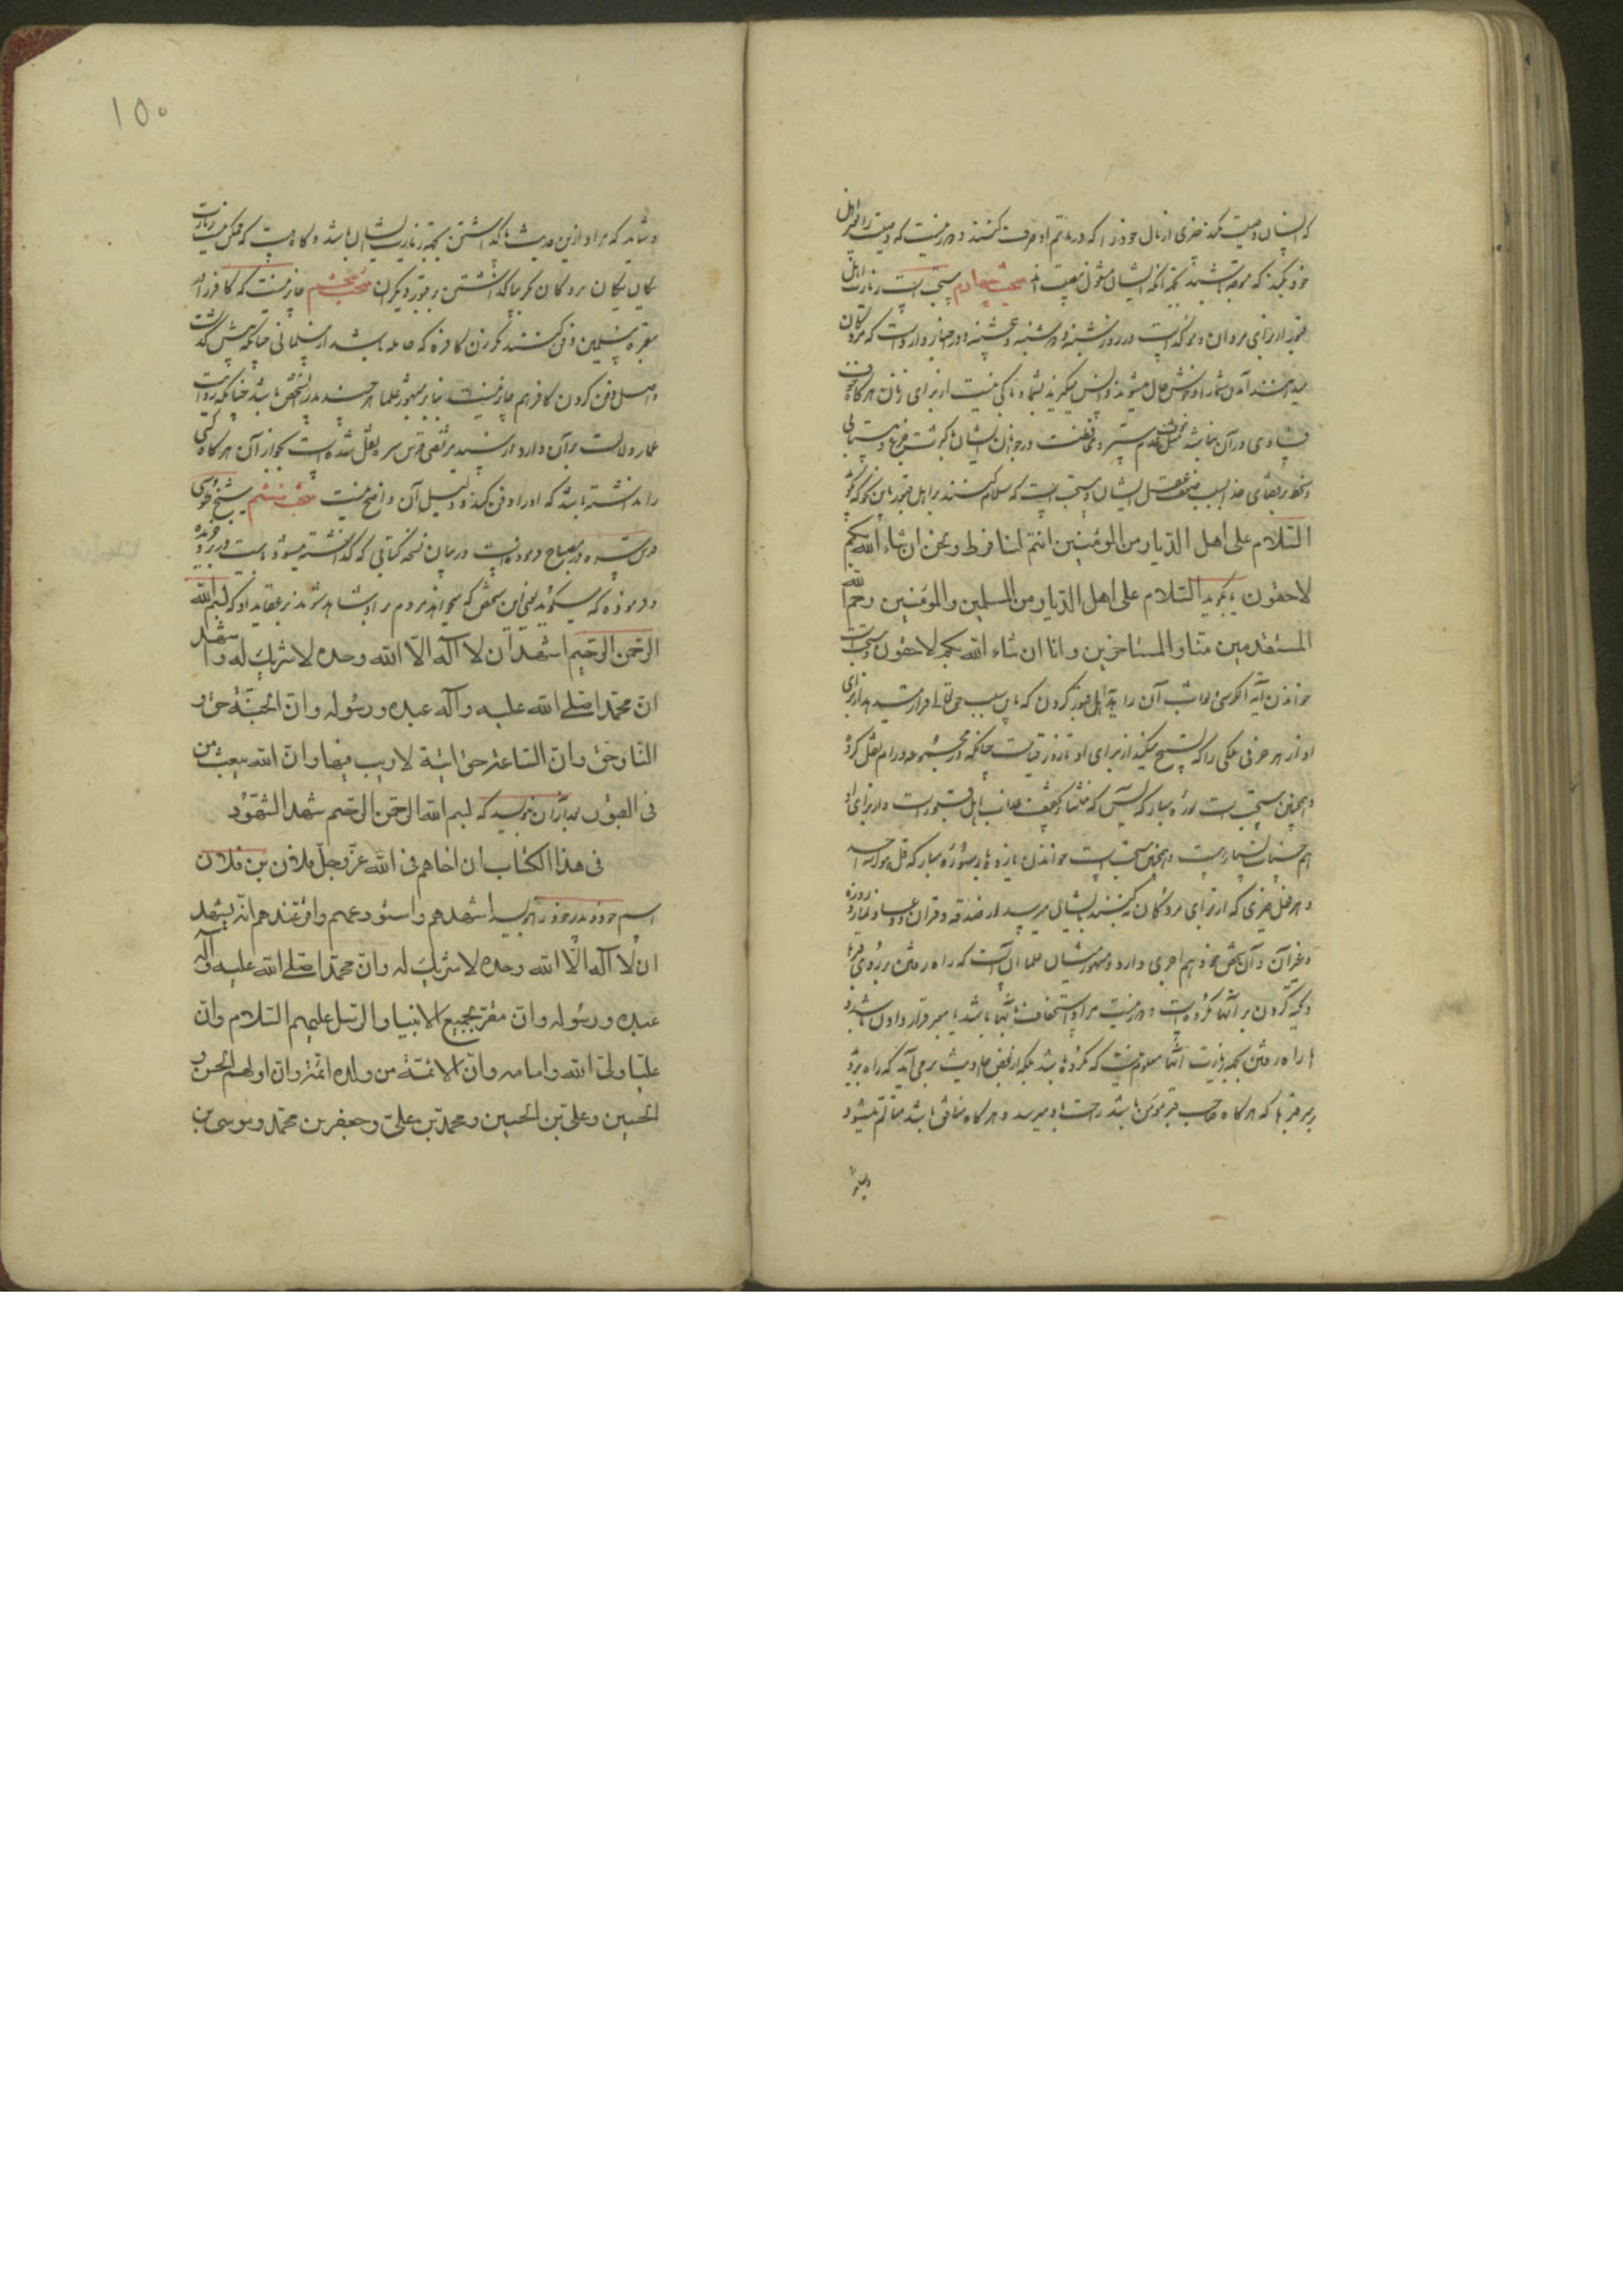 که انسان وصیت کند چیزی از مال خود را که در ماتم او صرف کنند و دور نیست که وصیت را بغیر اهل
خود بکند که متوجه باشند بجهة آنکه ایشان مشغول مصیبت اند مبحث چهارم مستحب است زیارت اهل
قبور از برای مردان و مؤکد است در روز شنبه و دوشنبه و پنجشنبه و در اخبار وارد است که مردگان
میدانند آمدن شما را و خوش حال میشوند و انس میگیرند بشما و باکی نیست از برای زنان هرگاه خوف
فسادی در آن نباشد
و سخط بر قضای خدا بسبب ضعف عقل ایشان و مستحب است که سلام کنند بر اهل قبور باین نحو که بگوید
السّلام علی اهل الدّیار من المؤمنین انتم لنا فرط و نحن ان شاء الله بکم
لاحقون یا بگوید السّلام علی اهل الدّیار من المسلمین والمؤمنین رحم الله
المستقدمین منّا والمستاخرین وانا ان شاء الله بکم لاحقون و مستحب است
خواندن آیة الکرسی و ثواب آن را بهدیه اهل قبور کردن که باین سبب حق تعالی قرار میدهد از برای
او از هر حرفی ملکی را که تسبیح میکند از برای او تا روز قیامت چنانکه در مجموعه ورام نقل کرده
و همچنین مستحب است سوره مبارکه یس که منشأ تخفیف عذاب اهل قبور است و از برای او
هم حسنات بسیار است و همچنین مستحب است خواندن یازده بار سوره مبارکه قل هو الله احد
و هر عمل خیری که از برای مردگان میکنند بایشان میرسد از صدقه و قرآن و دعا و نماز و روزه
و غیر آن و آن شخص خود هم اجری دارد و مشهور میان علما آن است که راه رفتن بر روی قبرها
و تکیه کردن بر آنها مکروه است و دور نیست مراد استخفاف بآنها باشد یا ممر قرار دادن باشد و
امّا راه رفتن بجهة زیارت آنها معلوم نیست که مکروه باشد بلکه از بعض احادیث بر می‌آید که راه برود
بر سر قبرها که هرگاه صاحب قبر مؤمن باشد راحت باو میرسد و هرگاه منافق باشد متألّم میشود
۱۵۰
و شاید که مراد ازین حدیث پا گذاشتن بجهة زیارت ایشان باشد و گاه هست که ممکن نیست زیارت
یکان یکان مردگان مگر بپا گذاشتن بر قبور دیگران مبحث پنجم جایز نیست که کافر را در
مقبره مسلمین دفن کنند مگر زن کافره که حامله باشد از مسلمانی چنانکه پیش گذشت
و اصل دفن کردن کافر هم جایز نیست بنابر مشهور علما هرچند پدر آن شخص باشد چنانکه روایت
عمار دلالت بر آن دارد و از سید مرتضی قدس سره نقل شده است جواز آن هرگاه کسی
را نداشته باشد که او را دفن کند و دلیل آن واضح نیست مبحث ششم شیخ طوسی
قدس سره در مصباح فرموده است در بیان نسخه کتابی که گذاشته میشود با میت در نزد جریده
و فرموده که میگوید یعنی این شخص که میخواهد مردم بر او شاهد شوند بر عقاید او که بسم الله
الرّحمن الرّحیم اشهد ان لا اله الّا الله وحده لا شریک له واشهد
انّ محمّدا صلّی الله علیه وآله عبده ورسوله وانّ الجنّة حقّ و
النّار حقّ وانّ السّاعة حقّ اتیة لا ریب فیها وانّ الله یبعث من
فی القبور بعد از آن بنویسد که بسم الله الرّحمن الرّحیم شهد الشّهود
فی هذا الکتاب ان اخاهم فی الله عزّ وجلّ فلان بن فلان
اسم خود و پدر خود را بنویسد اشهدهم واستودعهم واقرّ عندهم انّه یشهد
ان لا اله الّا الله وحده لا شریک له وانّ محمّدا صلّی الله علیه وآله
عبده ورسوله وانّه مقرّ بجمیع الانبیا والرّسل علیهم السّلام وانّ
علیّا ولیّ الله وامامه وانّ الائمّة من ولده ائمّته وان اولهم الحسن و
الحسین وعلی بن الحسین ومحمّد بن علیّ وجعفر بن محمّد وموسی بن